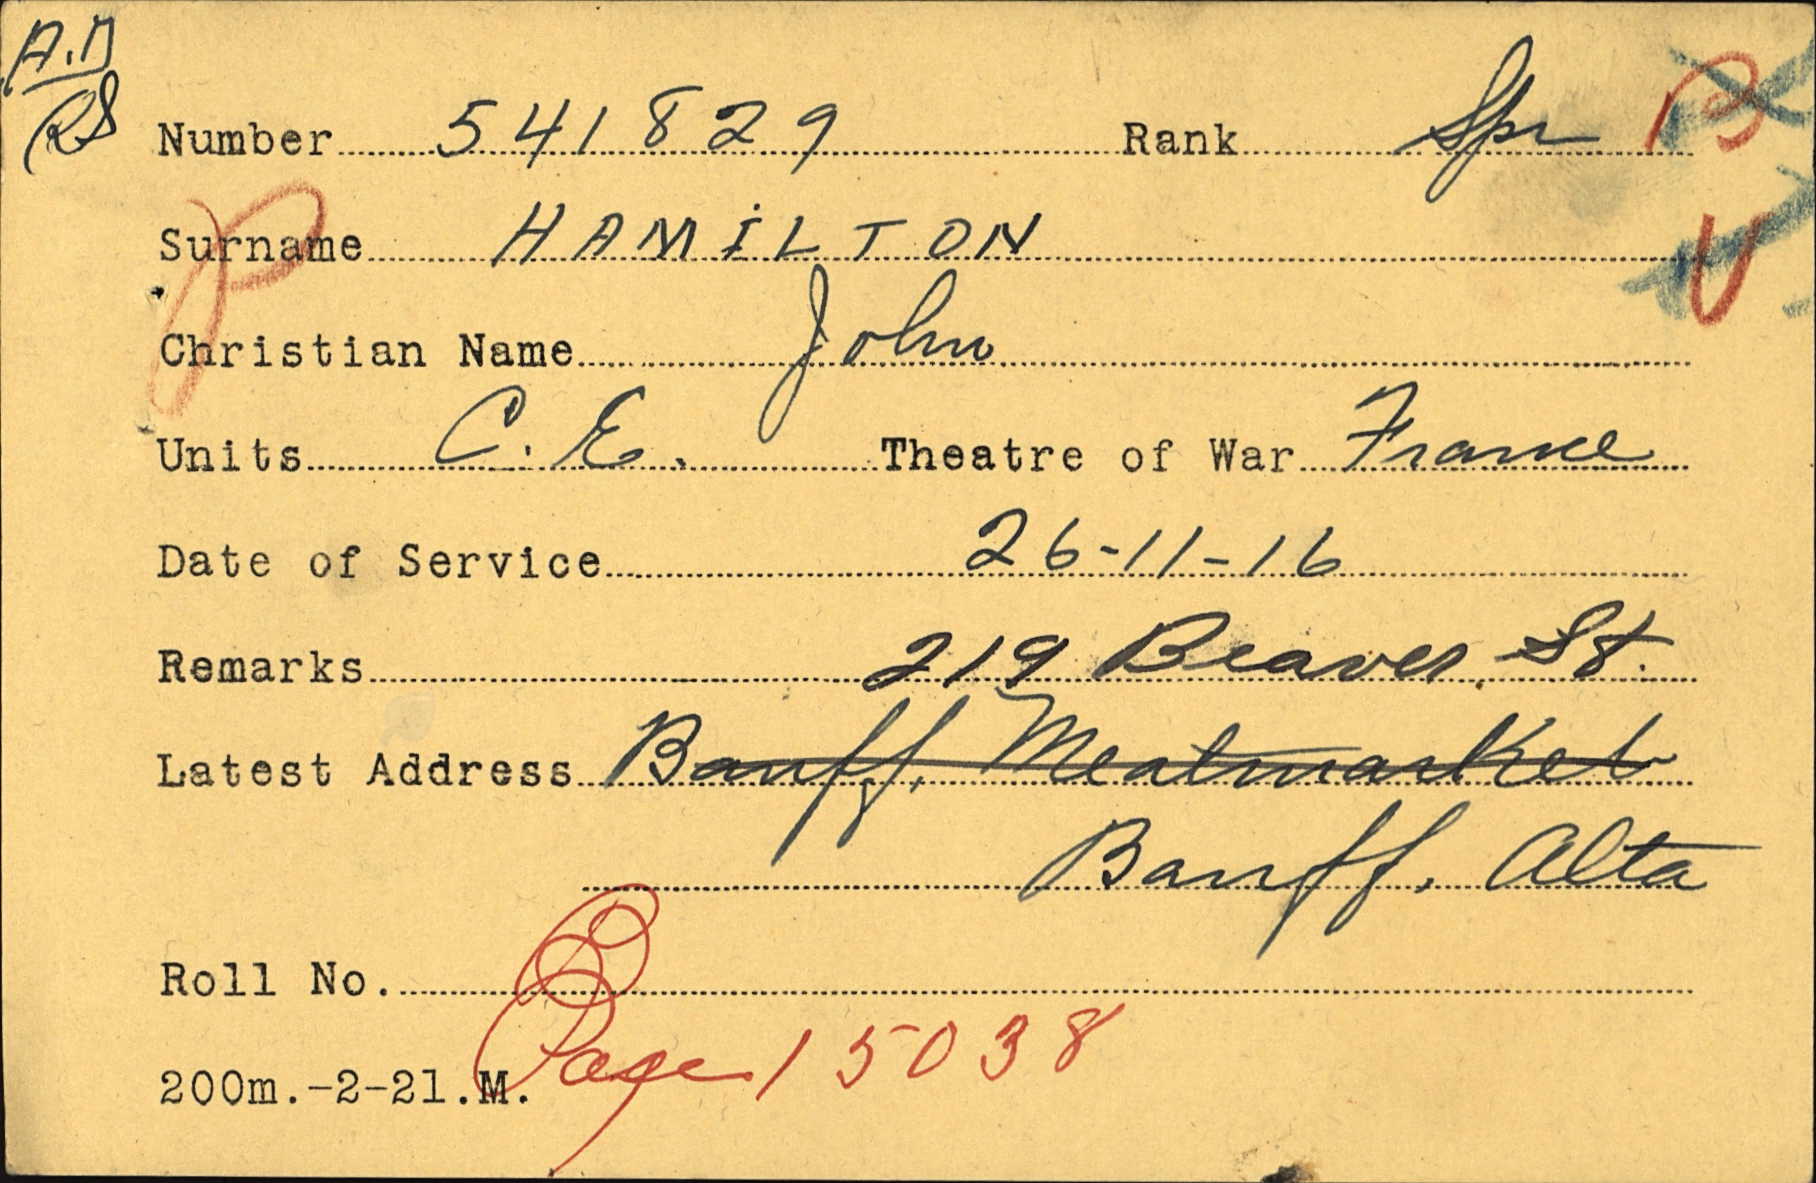 A.D
RS
Number 541829 Rank Spr B
Surname HAMILTON V
P
Christian Name John
Units C. E. Theatre of War France
Date of Service 26-11-16
Remarks 219 Beaver St.
Latest Address Banff. Meatmarket
Banff. Alta
Roll No. B
Page 15038
200m.-2-21.M.